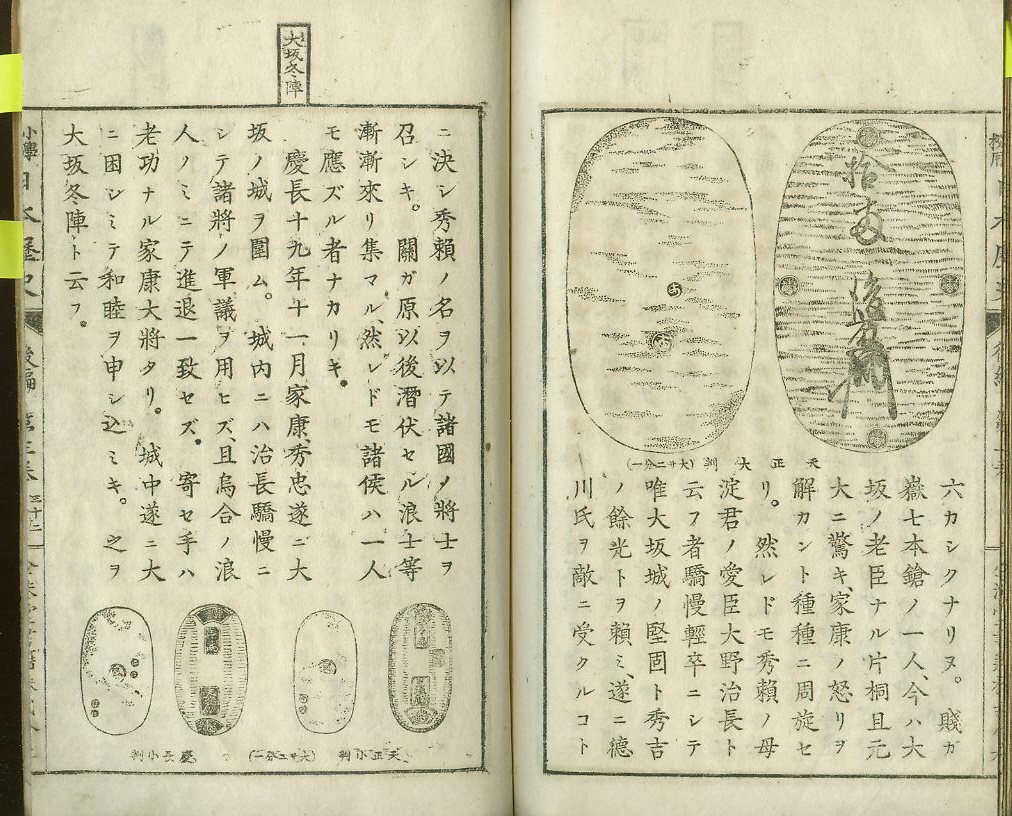 拾両後藤
天正大判（大サ二分一）
六カシクナリヌ。賤ガ
嶽七本鎗ノ一人、今ハ大
坂ノ老臣ナル片桐且元
大ニ驚キ、家康ノ怒リヲ
解カント種種ニ周旋セ
リ。然レドモ秀賴ノ母
淀君ノ愛臣大野治長ト
云フ者驕慢輕卒ニシテ
唯大坂城ノ堅固ト秀吉
ノ餘光トヲ賴ミ、遂ニ德
川氏ヲ敵ニ受クルコト
大坂冬陣
ニ決シ秀賴ノ名ヲ以テ諸國ノ將士ヲ
召シキ。關ガ原以後潛伏セル浪士等
漸漸來リ集マル、然レドモ諸侯ハ一人
モ應ズル者ナカリキ。
慶長十九年十一月家康、秀忠遂ニ大
坂ノ城ヲ圍ム。城内ニハ治長驕慢ニ
シテ諸將ノ軍議ヲ用ヒズ、且烏合ノ浪
人ノミニテ進退一致セズ。寄セ手ハ
老功ナル家康大將タリ。城中遂ニ大
ニ困シミテ和睦ヲ申シ込ミキ。之ヲ
大坂冬陣ト云フ。
天正小判（大サ二分一）慶長小判
小學日本歷史 後編 第三卷 三十二